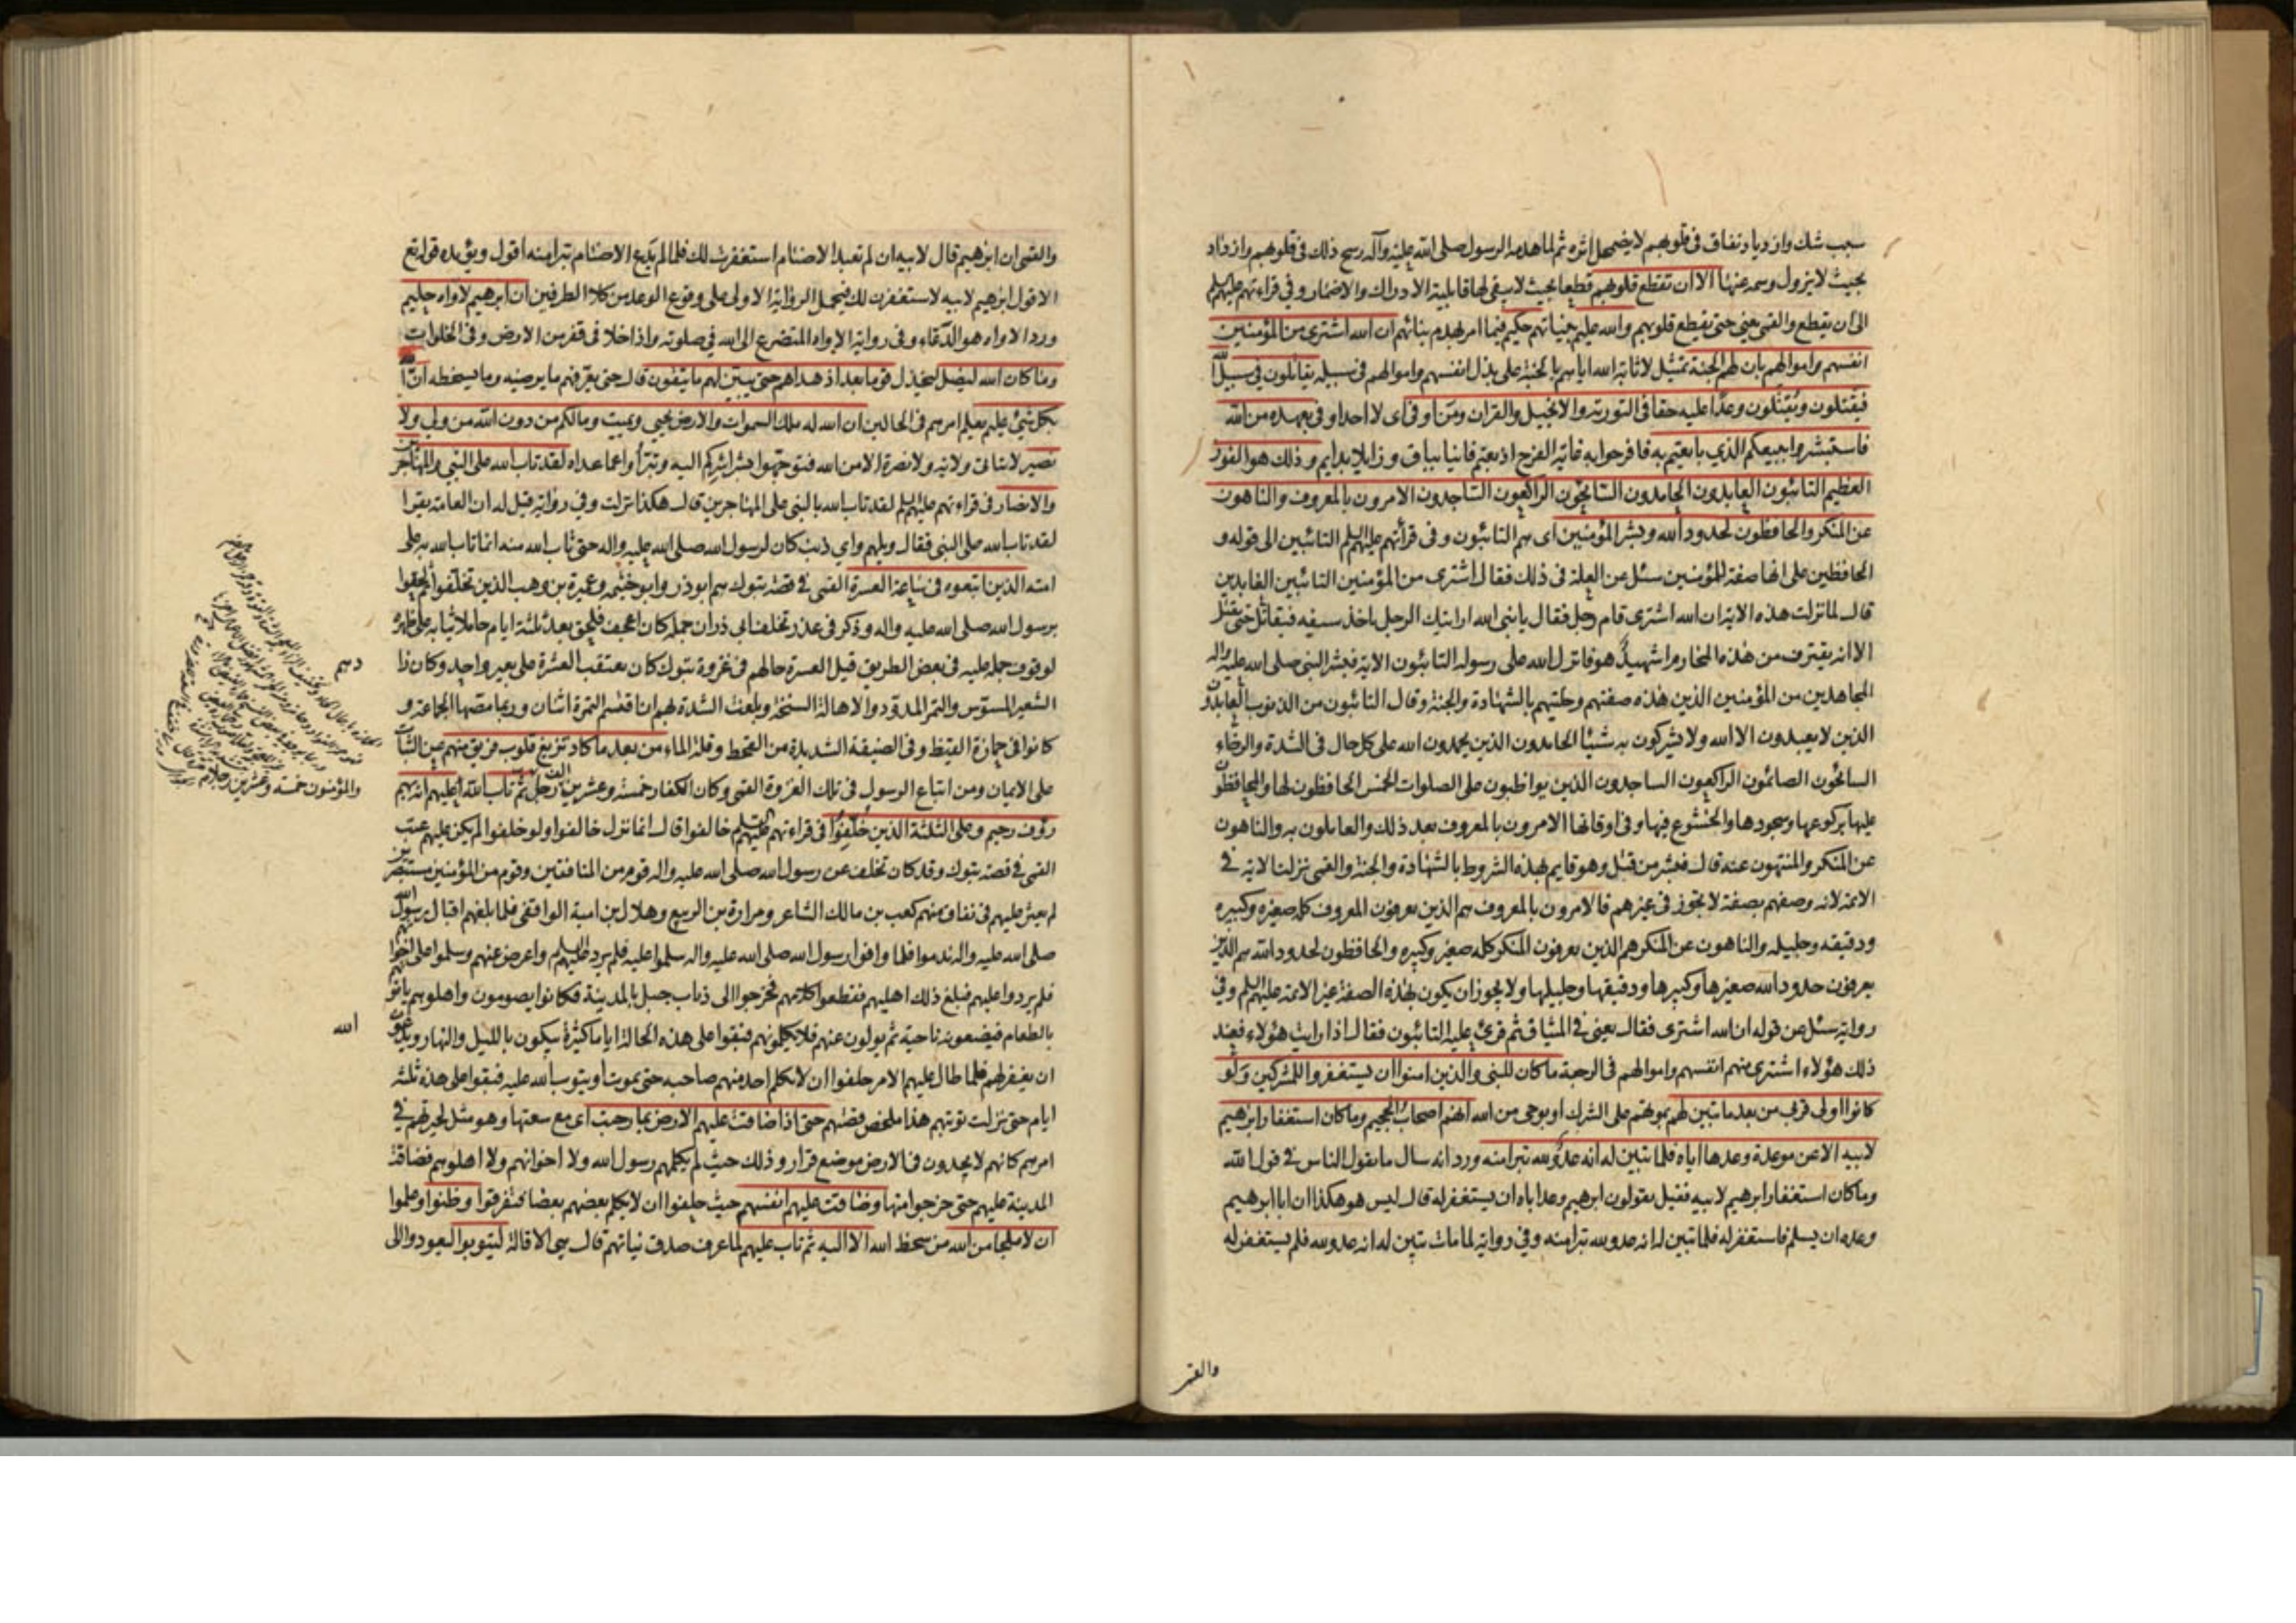 سبب شك وازدياد نفاق في قلوبهم لا يضمحل اثره ثم لما هدمه الرسول صلى الله عليه وآله رسخ ذلك في قلوبهم وازداد
بحيث لا يزول وسمه عنها الا ان تقطع قلوبهم قطعا بحيث لا يبقى لها قابلية الادراك والاضمار وفي قراءتهم عليهم
الى ان يقطع والقمى يعنى حتى يقطع قلوبهم والله عليم بنياتهم حكيم فيما امر بهدم بنائهم ان الله اشترى من المؤمنين
انفسهم واموالهم بان لهم الجنة تمثيل لاثابة الله اياهم بالجنة على بذل انفسهم واموالهم في سبيله يقاتلون في سبيل الله
فيقتلون ويقتلون وعدا عليه حقا في التورية والانجيل والقران ومن اوفى اى لا احد اوفى بعهده من الله
فاستبشروا ببيعكم الذي بايعتم به فافرحوا به غاية الفرح اذ بعتم فانيا بباق وزايلا بدايم وذلك هو الفوز
العظيم التائبون العابدون الحامدون السائحون الراكعون الساجدون الامرون بالمعروف والناهون
عن المنكر والحافظون لحدود الله وبشر المؤمنين اى هم التائبون وفى قرائتهم عليهم السلم التائبين الى قوله و
الحافظين على انها صفة للمؤمنين سئل عن العلة فى ذلك فقال اشترى من المؤمنين التائبين العابدين
قال لما نزلت هذه الاية ان الله اشترى قام رجل فقال يا نبى الله ارايتك الرجل ياخذ سيفه فيقاتل حتى يقتل
الا انه يقترف من هذه المحارم اشهيد هو فانزل الله على رسوله التائبون الاية فبشر النبى صلى الله عليه واله
المجاهدين من المؤمنين الذين هذه صفتهم وحليتهم بالشهادة والجنة وقال التائبون من الذنوب العابدون
الذين لا يعبدون الا الله ولا يشركون به شيئا الحامدون الذين يحمدون الله على كل حال فى الشدة والرخاء
السائحون الصائمون الراكعون الساجدون الذين يواظبون على الصلوات الخمس الحافظون لها والمحافظون
عليها بركوعها وسجودها والخشوع فيها وفى اوقاتها الامرون بالمعروف بعد ذلك والعاملون به والناهون
عن المنكر والمنتهون عنه قال فبشر من قتل وهو قايم بهذه الشروط بالشهادة والجنة والقمى نزلت الاية في
الائمة لانه وصفهم بصفة لا تجوز فى غيرهم فالامرون بالمعروف هم الذين يعرفون المعروف كله صغيره وكبيره
ودقيقه وجليله والناهون عن المنكر هم الذين يعرفون المنكر كله صغيره وكبيره والحافظون لحدود الله هم الذين
يعرفون حدود الله صغيرها وكبيرها ودقيقها وجليلها ولا يجوز ان يكون بهذه الصفة غير الائمة عليهم السلم وفي
رواية سئل عن قوله ان الله اشترى فقال يعنى في الميثاق ثم قرئ عليه التائبون فقال اذا رايت هؤلاء فعند
ذلك هؤلاء اشترى منهم انفسهم واموالهم فى الرجعة ما كان للنبى والذين امنوا ان يستغفروا للمشركين ولو
كانوا اولى قربى من بعد ما تبين لهم بموتهم على الشرك او بوحى من الله انهم اصحاب الجحيم وما كان استغفار ابرهيم
لابيه الا عن موعدة وعدها اياه فلما تبين له انه عدو لله تبرا منه ورد انه سال ما يقول الناس في قول الله
وما كان استغفار ابرهيم لابيه فقيل يقولون ابرهيم وعد اباه ان يستغفر له قال ليس هو هكذا ان ابا ابرهيم
وعده ان يسلم فاستغفر له فلما تبين له انه عدو لله تبرا منه وفي رواية لما مات تبين له انه عدو لله فلم يستغفر له
والقمى
والقمى ان ابرهيم قال لابيه ان لم تعبد الاصنام استغفرت لك فلما لم يدع الاصنام تبرا منه اقول ويؤيده قوله تع
الا قول ابرهيم لابيه لاستغفرن لك فيحمل الرواية الاولى على وقوع الوعد من كلا الطرفين ان ابرهيم لاواه حليم
ورد الاواه هو الدعاء وفى رواية الاواه المتضرع الى الله في صلوته واذا خلا فى قفر من الارض وفى الخلوات
وما كان الله ليضل ليخذل قوما بعد اذ هداهم حتى يبين لهم ما يتقون قال حتى يعرفهم ما يرضيه وما يسخطه ان الله
بكل شيئ عليم يعلم امرهم فى الحالين ان الله له ملك السموات والارض يحيى ويميت وما لكم من دون الله من ولى ولا
نصير لا يتاتى ولاية ولا نصرة الا من الله فتوجهوا بشراشركم اليه وتبرأوا عما عداه لقد تاب الله على النبي والمهاجرين
والانصار فى قراءتهم عليهم السلم لقد تاب الله بالنبى على المهاجرين قال هكذا نزلت وفي رواية قيل له ان العامة يقرا
لقد تاب الله على النبى فقال ويلهم واي ذنب كان لرسول الله صلى الله عليه واله حتى تاب الله منه انما تاب الله به على
امته الذين اتبعوه فى ساعة العسرة القمى في قصة تبوك هم ابو ذر وابو خثيمه وعميرة بن وهب الذين تخلفوا ثم لحقوا
برسول الله صلى الله عليه واله وذكر فى عذر تخلف ابى ذر ان جمله كان اعجف فلحق بعد ثلثة ايام حاملا ثيابه على ظهره
لوقوف جمله عليه فى بعض الطريق قيل العسرة حالهم فى غزوة تبوك كان يعتقب العشرة على بعير واحد وكان زادهم
الشعير المسوس والتمر المدود والاهالة السنخة وبلغت الشدة بهم ان اقتسم التمرة اثنان وربما مصها الجماعة و
كانوا فى حمارة القيظ وفى الضيقة الشديدة من القحط وقلة الماء من بعد ما كاد تزيغ قلوب فريق منهم عن الثبات
على الايمان ومن اتباع الرسول فى تلك الغزوة القمى وكان الكفار خمسة وعشرين الف رجل ثم تاب الله عليهم انه بهم
رؤف رحيم وعلى الثلثة الذين خلفوا فى قراءتهم عليهم السلم خالفوا قال انما نزل خالفوا ولو خلفوا لم يكن عليهم عتب
القمى في قصة تبوك وقد كان تخلف عن رسول الله صلى الله عليه واله قوم من المنافقين وقوم من المؤمنين مستبصرين
لم يعثر عليهم فى نفاق منهم كعب بن مالك الشاعر ومرارة بن الربيع وهلال بن امية الواقفى فلما بلغهم اقبال رسول الله
صلى الله عليه واله ندموا فلما وافوا رسول الله صلى الله عليه واله سلموا عليه فلم يرد عليهم السلم واعرض عنهم وسلموا على اخوانهم
فلم يردوا عليهم فبلغ ذلك اهليهم فقطعوا كلامهم فخرجوا الى ذباب جبل بالمدينة فكانوا يصومون واهلوهم ياتونهم
بالطعام فيضعونه ناحية ثم يولون عنهم فلا يكلمونهم فبقوا على هذه الحالة اياما كثيرة يبكون بالليل والنهار ويدعون
الله
ان يغفر لهم فلما طال عليهم الامر حلفوا ان لا يكلم احد منهم صاحبه حتى يموت او يتوب الله عليه فبقوا على هذه ثلثة
ايام حتى نزلت توبتهم هذا ملخص قصتهم حتى اذا ضاقت عليهم الارض بما رحبت اى مع سعتها وهو مثل لحيرتهم في
امرهم كانهم لا يجدون فى الارض موضع قرار وذلك حيث لم يكلمهم رسول الله ولا اخوانهم ولا اهلوهم فضاقت
المدينة عليهم حتى خرجوا منها وضاقت عليهم انفسهم حيث حلفوا ان لا يكلم بعضهم بعضا فتفرقوا وظنوا وعلموا
ان لا ملجا من الله من سخط الله الا اليه ثم تاب عليهم لما عرف صدق نياتهم قال هى الاقالة ليتوبوا ليعودوا الى
والمؤمنون خمسة وعشرين رجلا